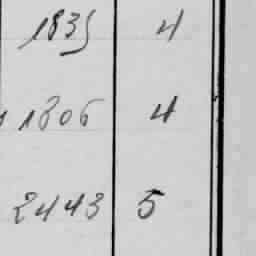 1835 4
1806 4
2443 5